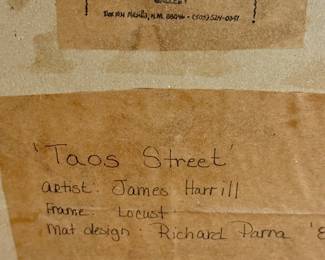 GALLERY
N.M. 88046 - (505) 524-0341
'Taos Street'
artist: James Harrill
Frame: Locust
Mat design: Richard Parra '8